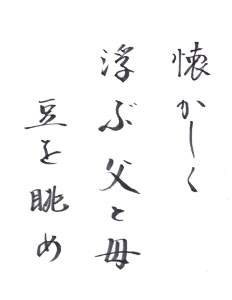 懐かしく
浮ぶ父と母
豆を眺め